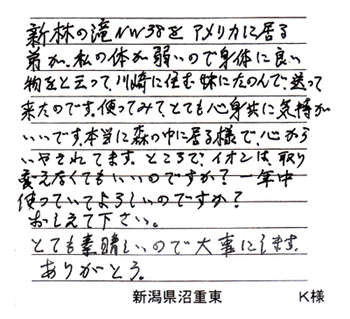 新林の滝NW38を アメリカに居る
弟が、私の体が弱いので身体に良い
物をと云って、川崎に住む妹にたのんで、送って
来たのです。使ってみて、とても心身共に気持が
いいです。本当に森の中に居る様で、心から
いやされてます。ところで、イオンは、取り
変えなくてもいいのですか？ 一年中
使っていてよろしいのですか？
おしえて下さい。
とても素晴しいので大事にします。
ありがとう。
新潟県沼重東 K様